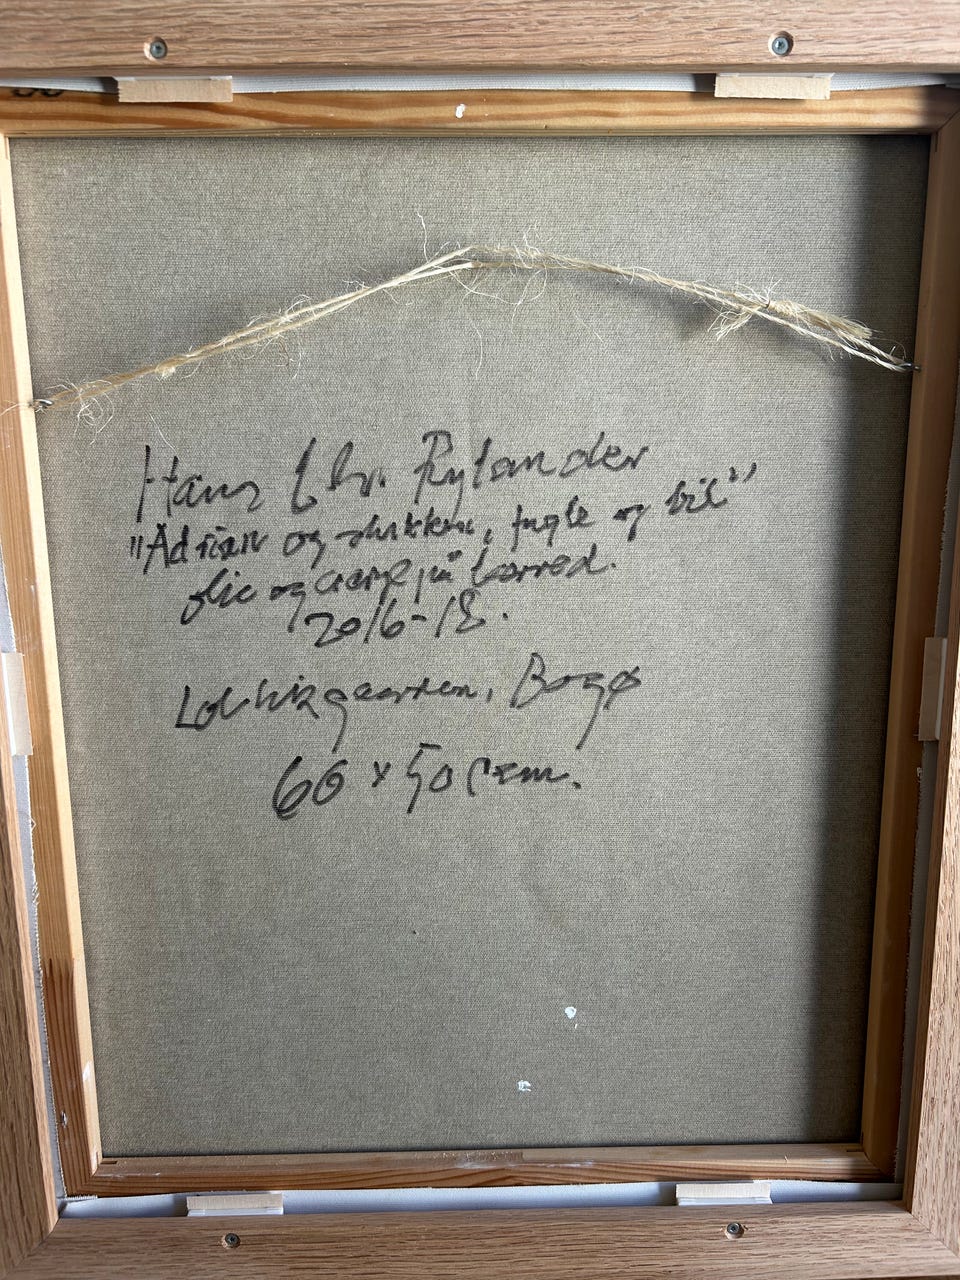 Hans Chr. Rylander
"Adrian og dukken, fugle og bil"
olie og på lærred.
2016-18.
Bogø
60 x 50 cm.